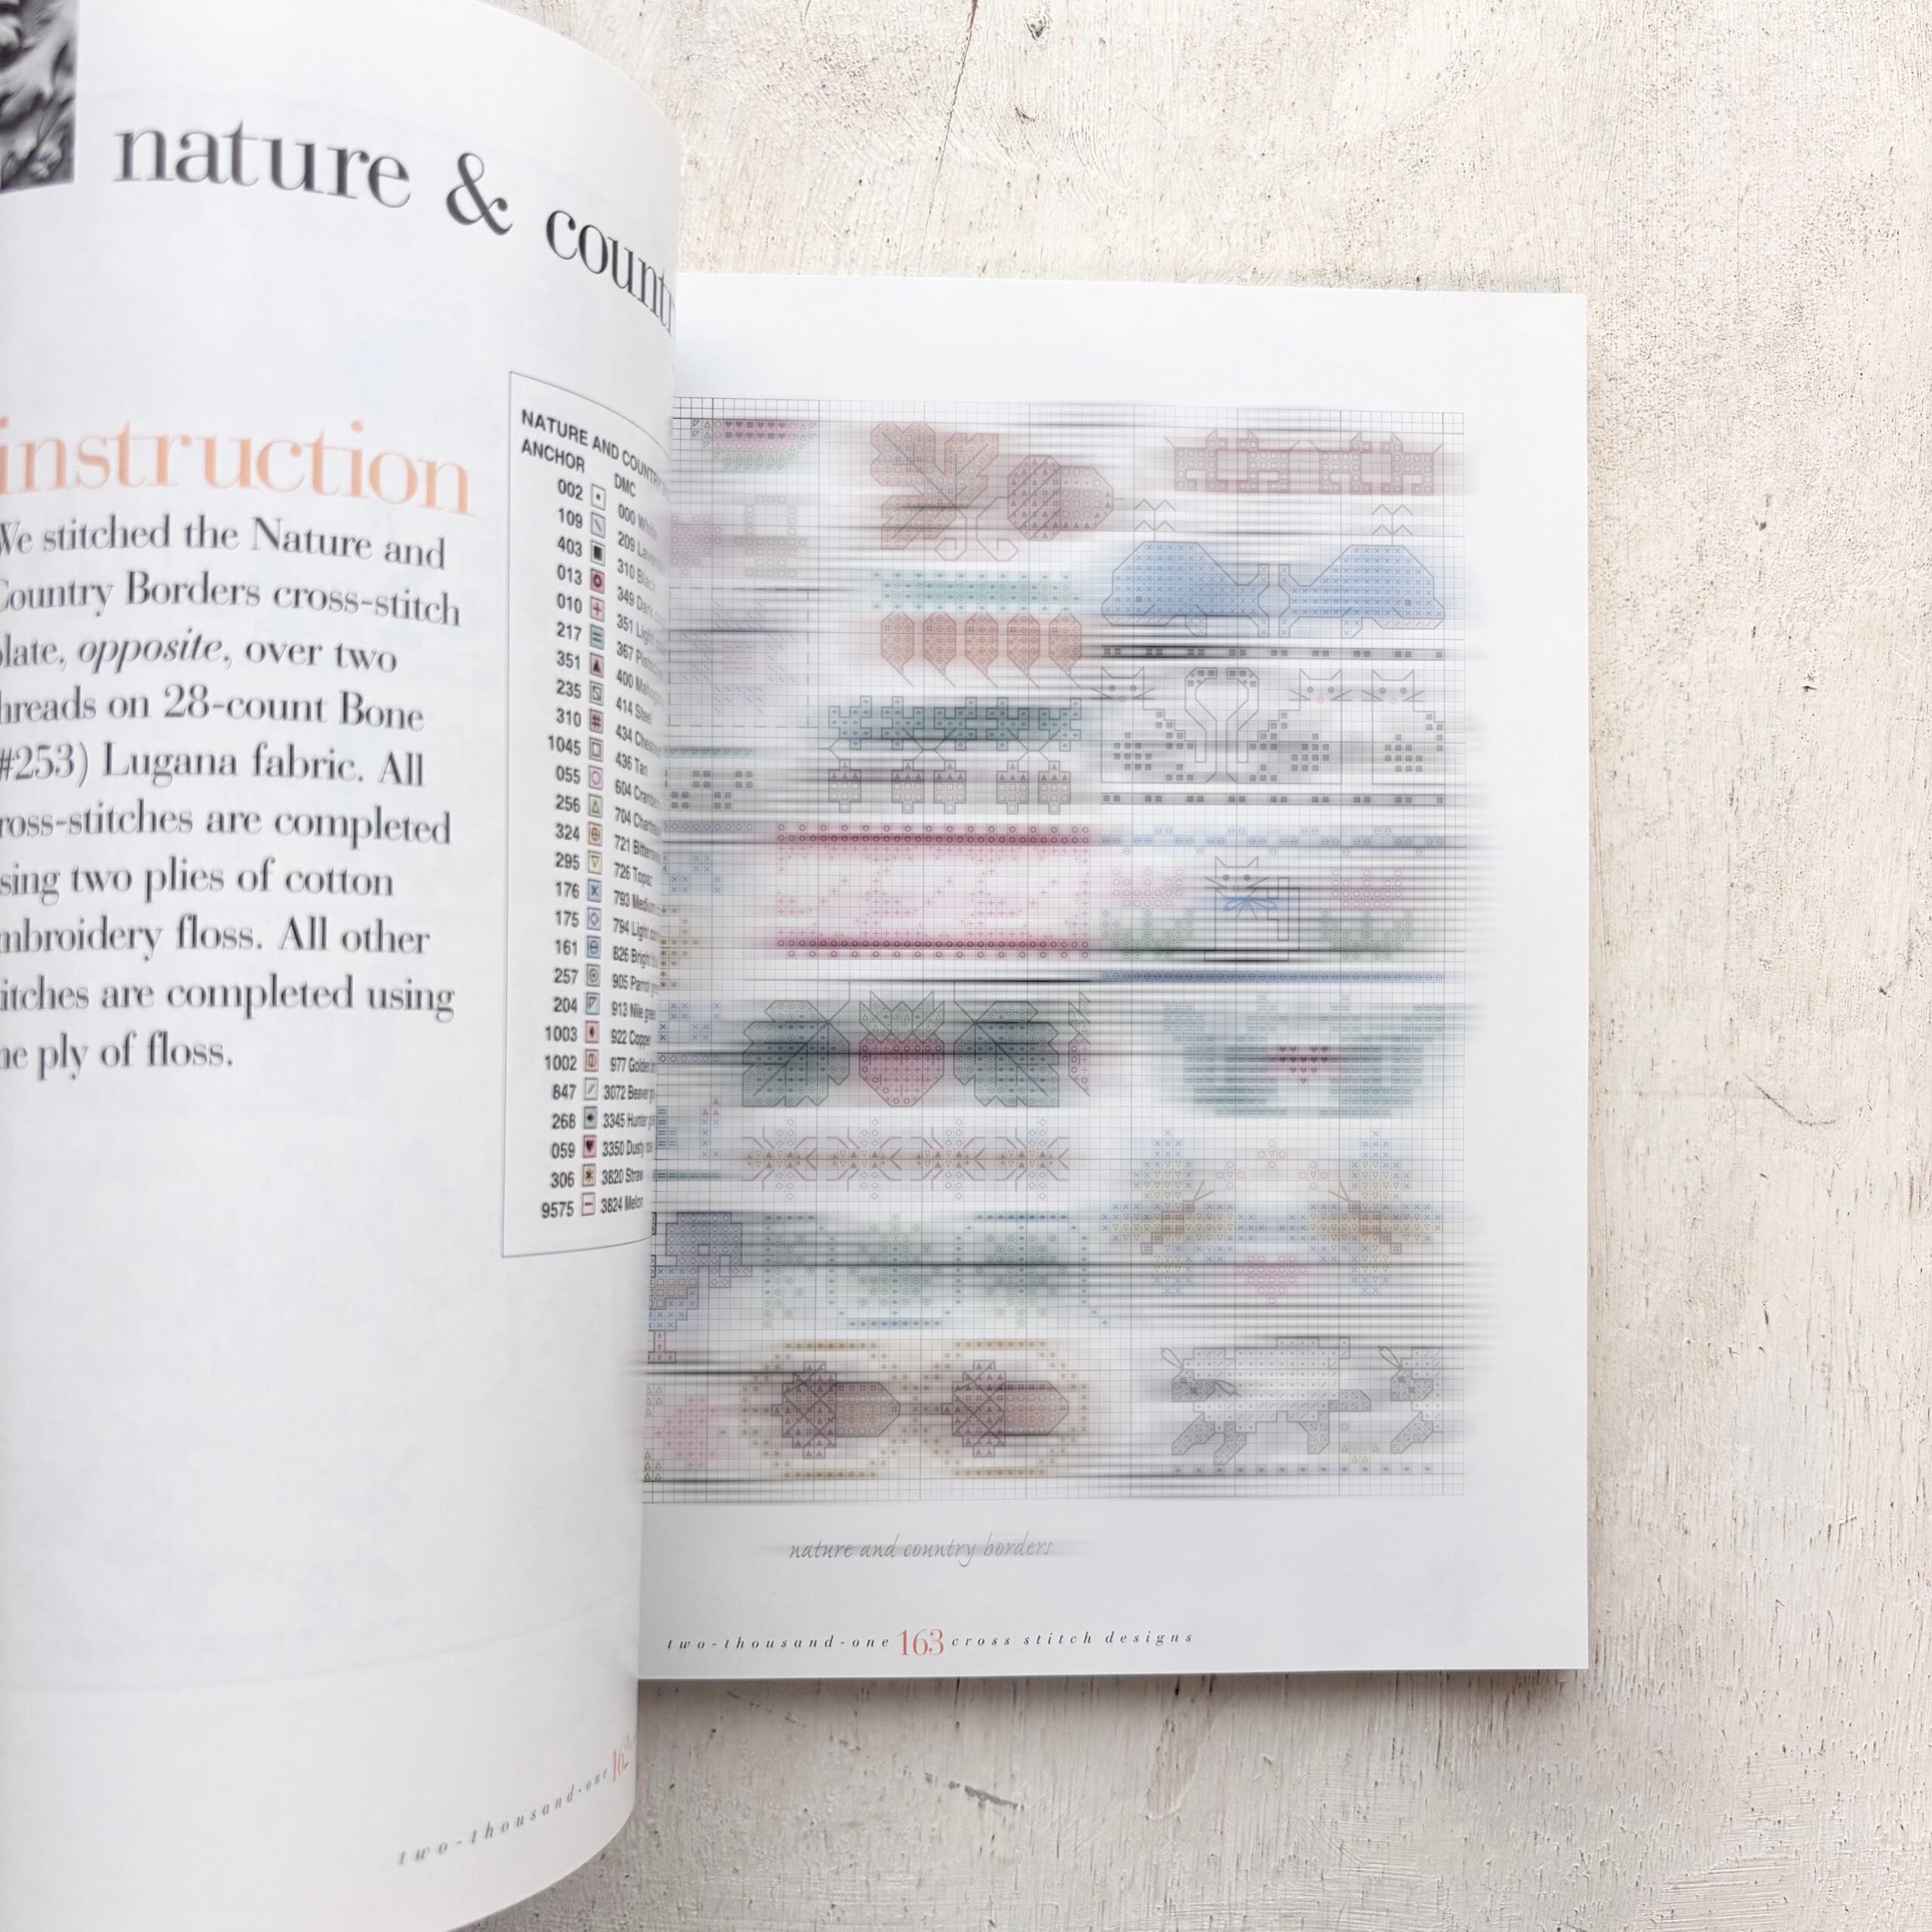 nature &
instruction
We stitched the Nature and
Country Borders cross-stitch
plate, opposite, over two
threads on 28-count Bone
(#253) Lugana fabric. All
cross-stitches are completed
using two plies of cotton
embroidery floss. All other
stitches are completed using
one ply of floss.
NATURE AND COUNTRY
ANCHOR DMC
002 000
109 209
403 310
013 349
010 351
217 367
351 400
235 414
310 434
1045 436 Tan
055 604
256 704
324 721
295 726 Topaz
176 793
175 794 Light
161 826 Bright
257 905 Parrot
204 913 Nile
1003 922 Copper
1002 977
847 3072 Beaver
268 3345 Hunter
059 3350 Dusty
306 3820 Straw
9575 3824 Melon
two-thousand-one 162
nature and country borders
two-thousand-one 163 cross stitch designs